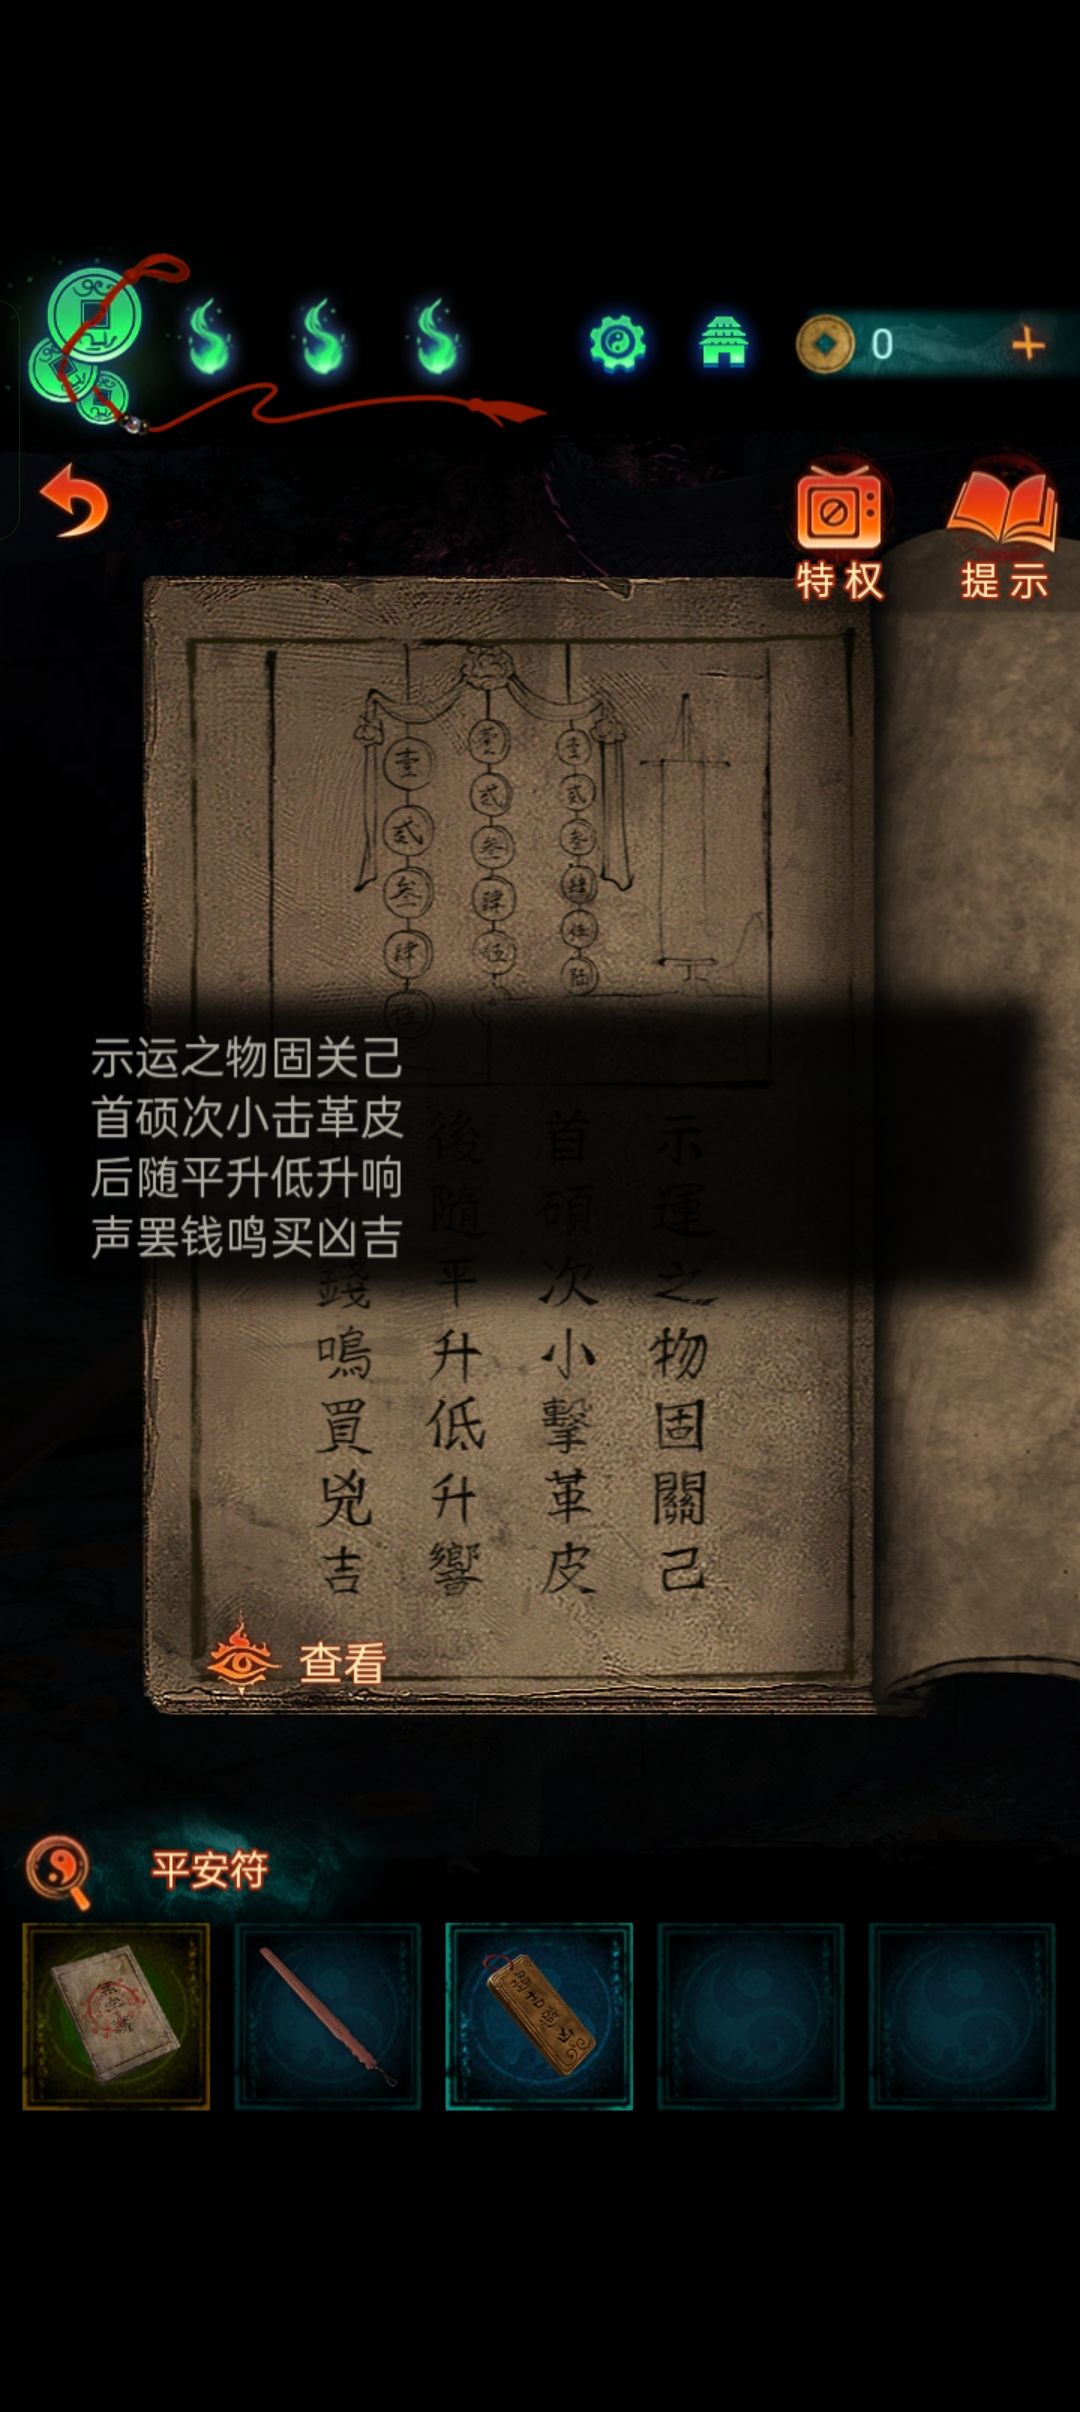 0
特权
提示
壹
贰
叁
肆
伍
壹
贰
叁
肆
伍
壹
贰
叁
肆
伍
陆
示运之物固关己
首硕次小击革皮
后随平升低升响
声罢钱鸣买凶吉
示運之物固關己
首碩次小擊革皮
後隨平升低升響
錢鳴買兇吉
查看
平安符